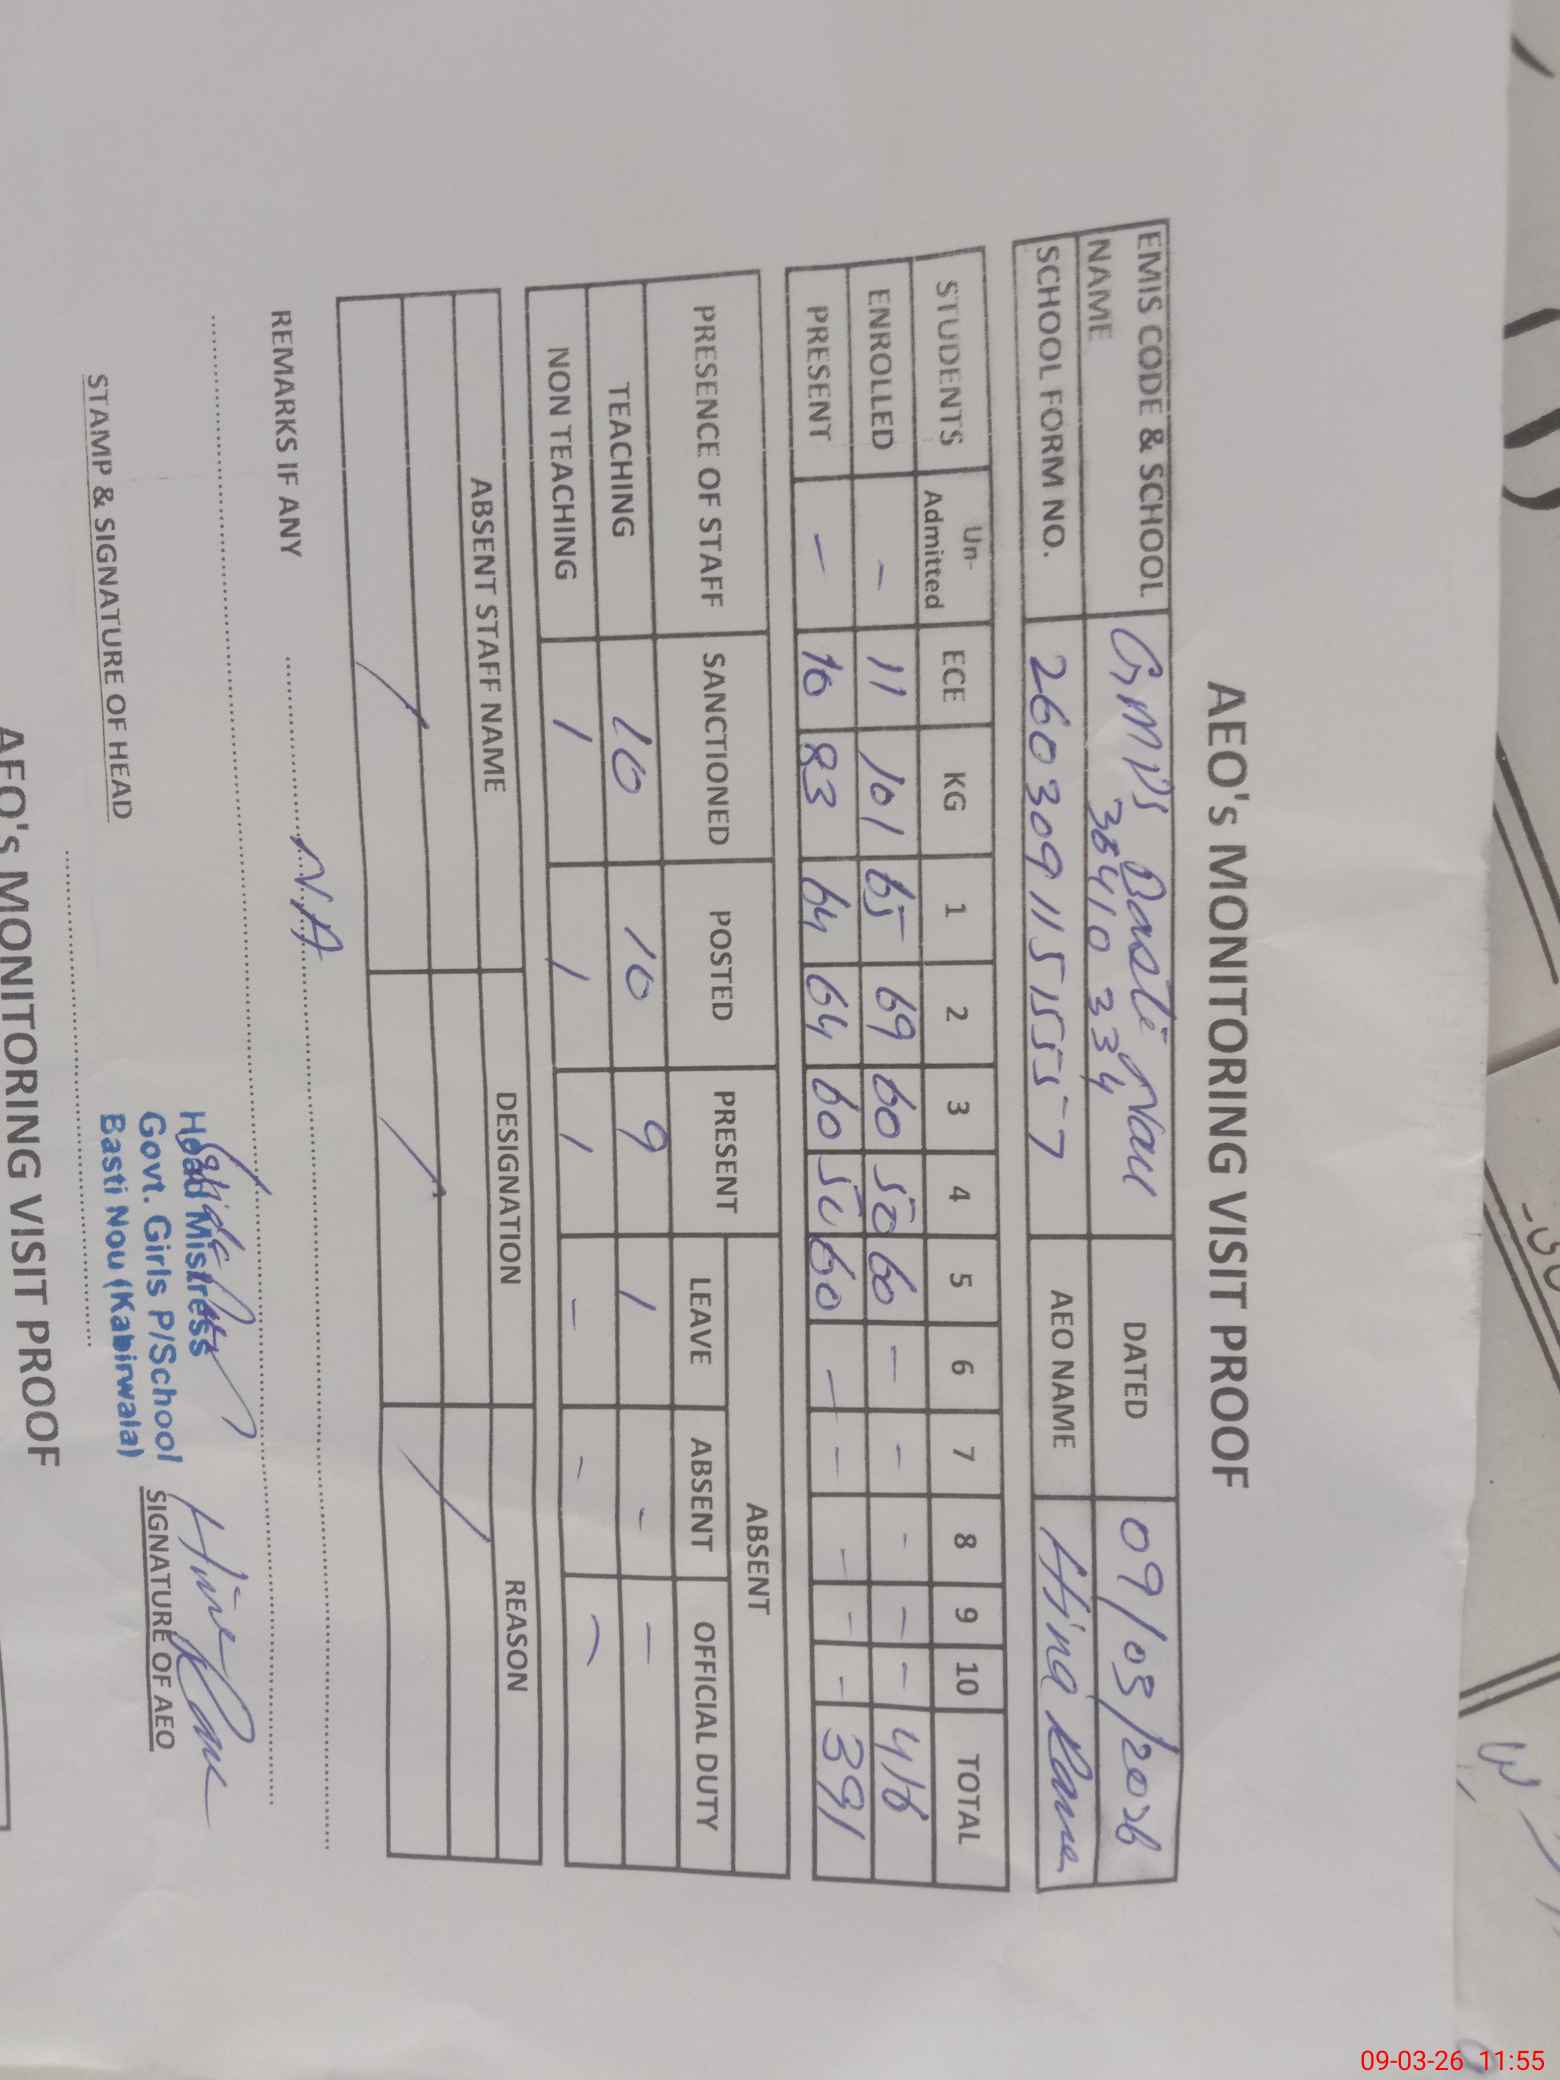 AEO's MONITORING VISIT PROOF
EMIS CODE & SCHOOL NAME GMPS Basti Nau 36410334 DATED 09/03/2026
SCHOOL FORM NO. 26030911515557 AEO NAME Hina Rana
STUDENTS Un-Admitted ECE KG 1 2 3 4 5 6 7 8 9 10 TOTAL
ENROLLED - 11 101 65 69 60 50 60 - - - - - 416
PRESENT - 10 83 64 64 60 50 60 - - - - - 391
PRESENCE OF STAFF SANCTIONED POSTED PRESENT ABSENT
LEAVE ABSENT OFFICIAL DUTY
TEACHING 10 10 9 1 - -
NON TEACHING 1 1 1 - - -
ABSENT STAFF NAME DESIGNATION REASON
REMARKS IF ANY N.A
Head Mistress
Govt. Girls P/School
Basti Nou (Kabirwala)
Hina Rana
STAMP & SIGNATURE OF HEAD SIGNATURE OF AEO
AEO's MONITORING VISIT PROOF
09-03-26 11:55